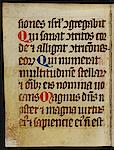 siones israhel congregabit
Qui sanat contritos cor
de et alligat contriciones
eorum Qui numerat
multitudinem stellarum
et omnibus eis nomina vo
cans Magnus dominus n
oster et magna virtus
eius et sapiencie eius non est